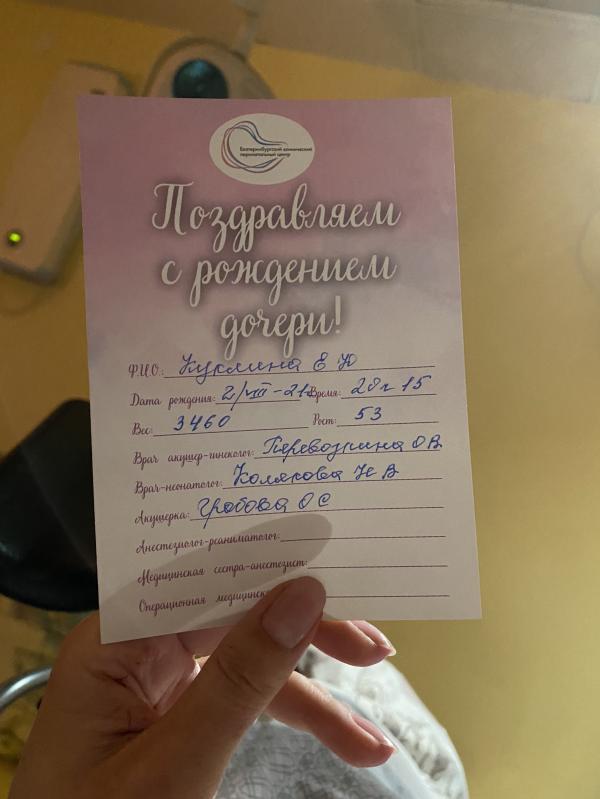 Екатеринбургский клинический
перинатальный центр
Поздравляем
с рождением
дочери!
Ф.И.О.: Куклина Е Ю
Дата рождения: 2/VIII-21 Время: 20ч 15
Вес: 3460 Рост: 53
Врач акушер-гинеколог: Перевозкина ОВ
Врач-неонатолог: Колякова Н В
Акушерка: Гробова О С
Анестезиолог-реаниматолог:
Медицинская сестра-анестезист:
Операционная